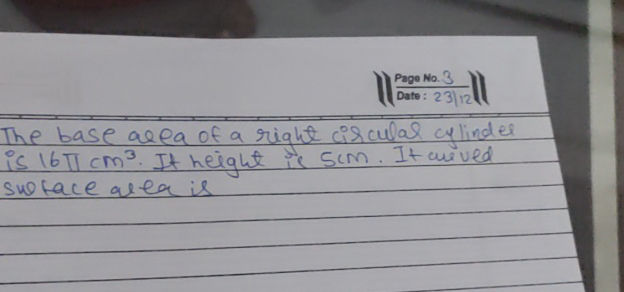 Page No. 3
Date: 23/12
The base area of a right circular cylinder
is 16π cm³. It height is 5cm. It curved
surface area is